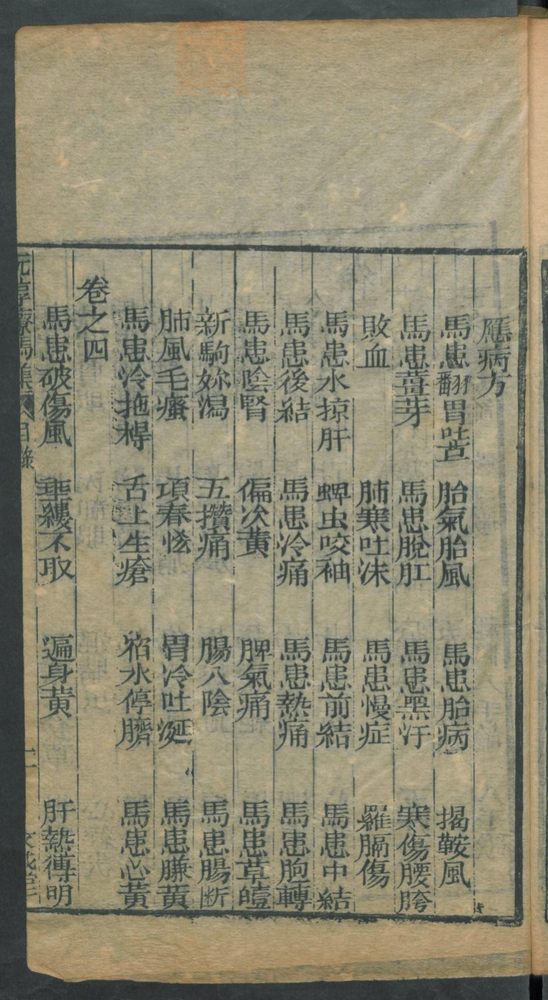 應病方
馬患翻胃吐草 胎氣胎風 馬患胎病 揭鞍風
馬患薑芽 馬患脫肛 馬患黑汗 寒傷腰胯
敗血 肺寒吐沫 馬患慢症 羅膈傷
馬患水掠肝 蜱虫咬袖 馬患前結 馬患中結
馬患後結 馬患冷痛 馬患熱痛 馬患胞轉
馬患陰腎 偏次黄 脾氣痛 馬患草噎
新駒妳瀉 五攢痛 腸入陰 馬患腸斷
肺風毛癢 項脊㤥 胃冷吐涎 馬患膁黄
馬患冷拖桿 舌上生瘡 宿水停臍 馬患心黄
卷之四
馬患破傷風 垂縷不收 遍身黄 肝熱傳明
元亨療馬集 目錄